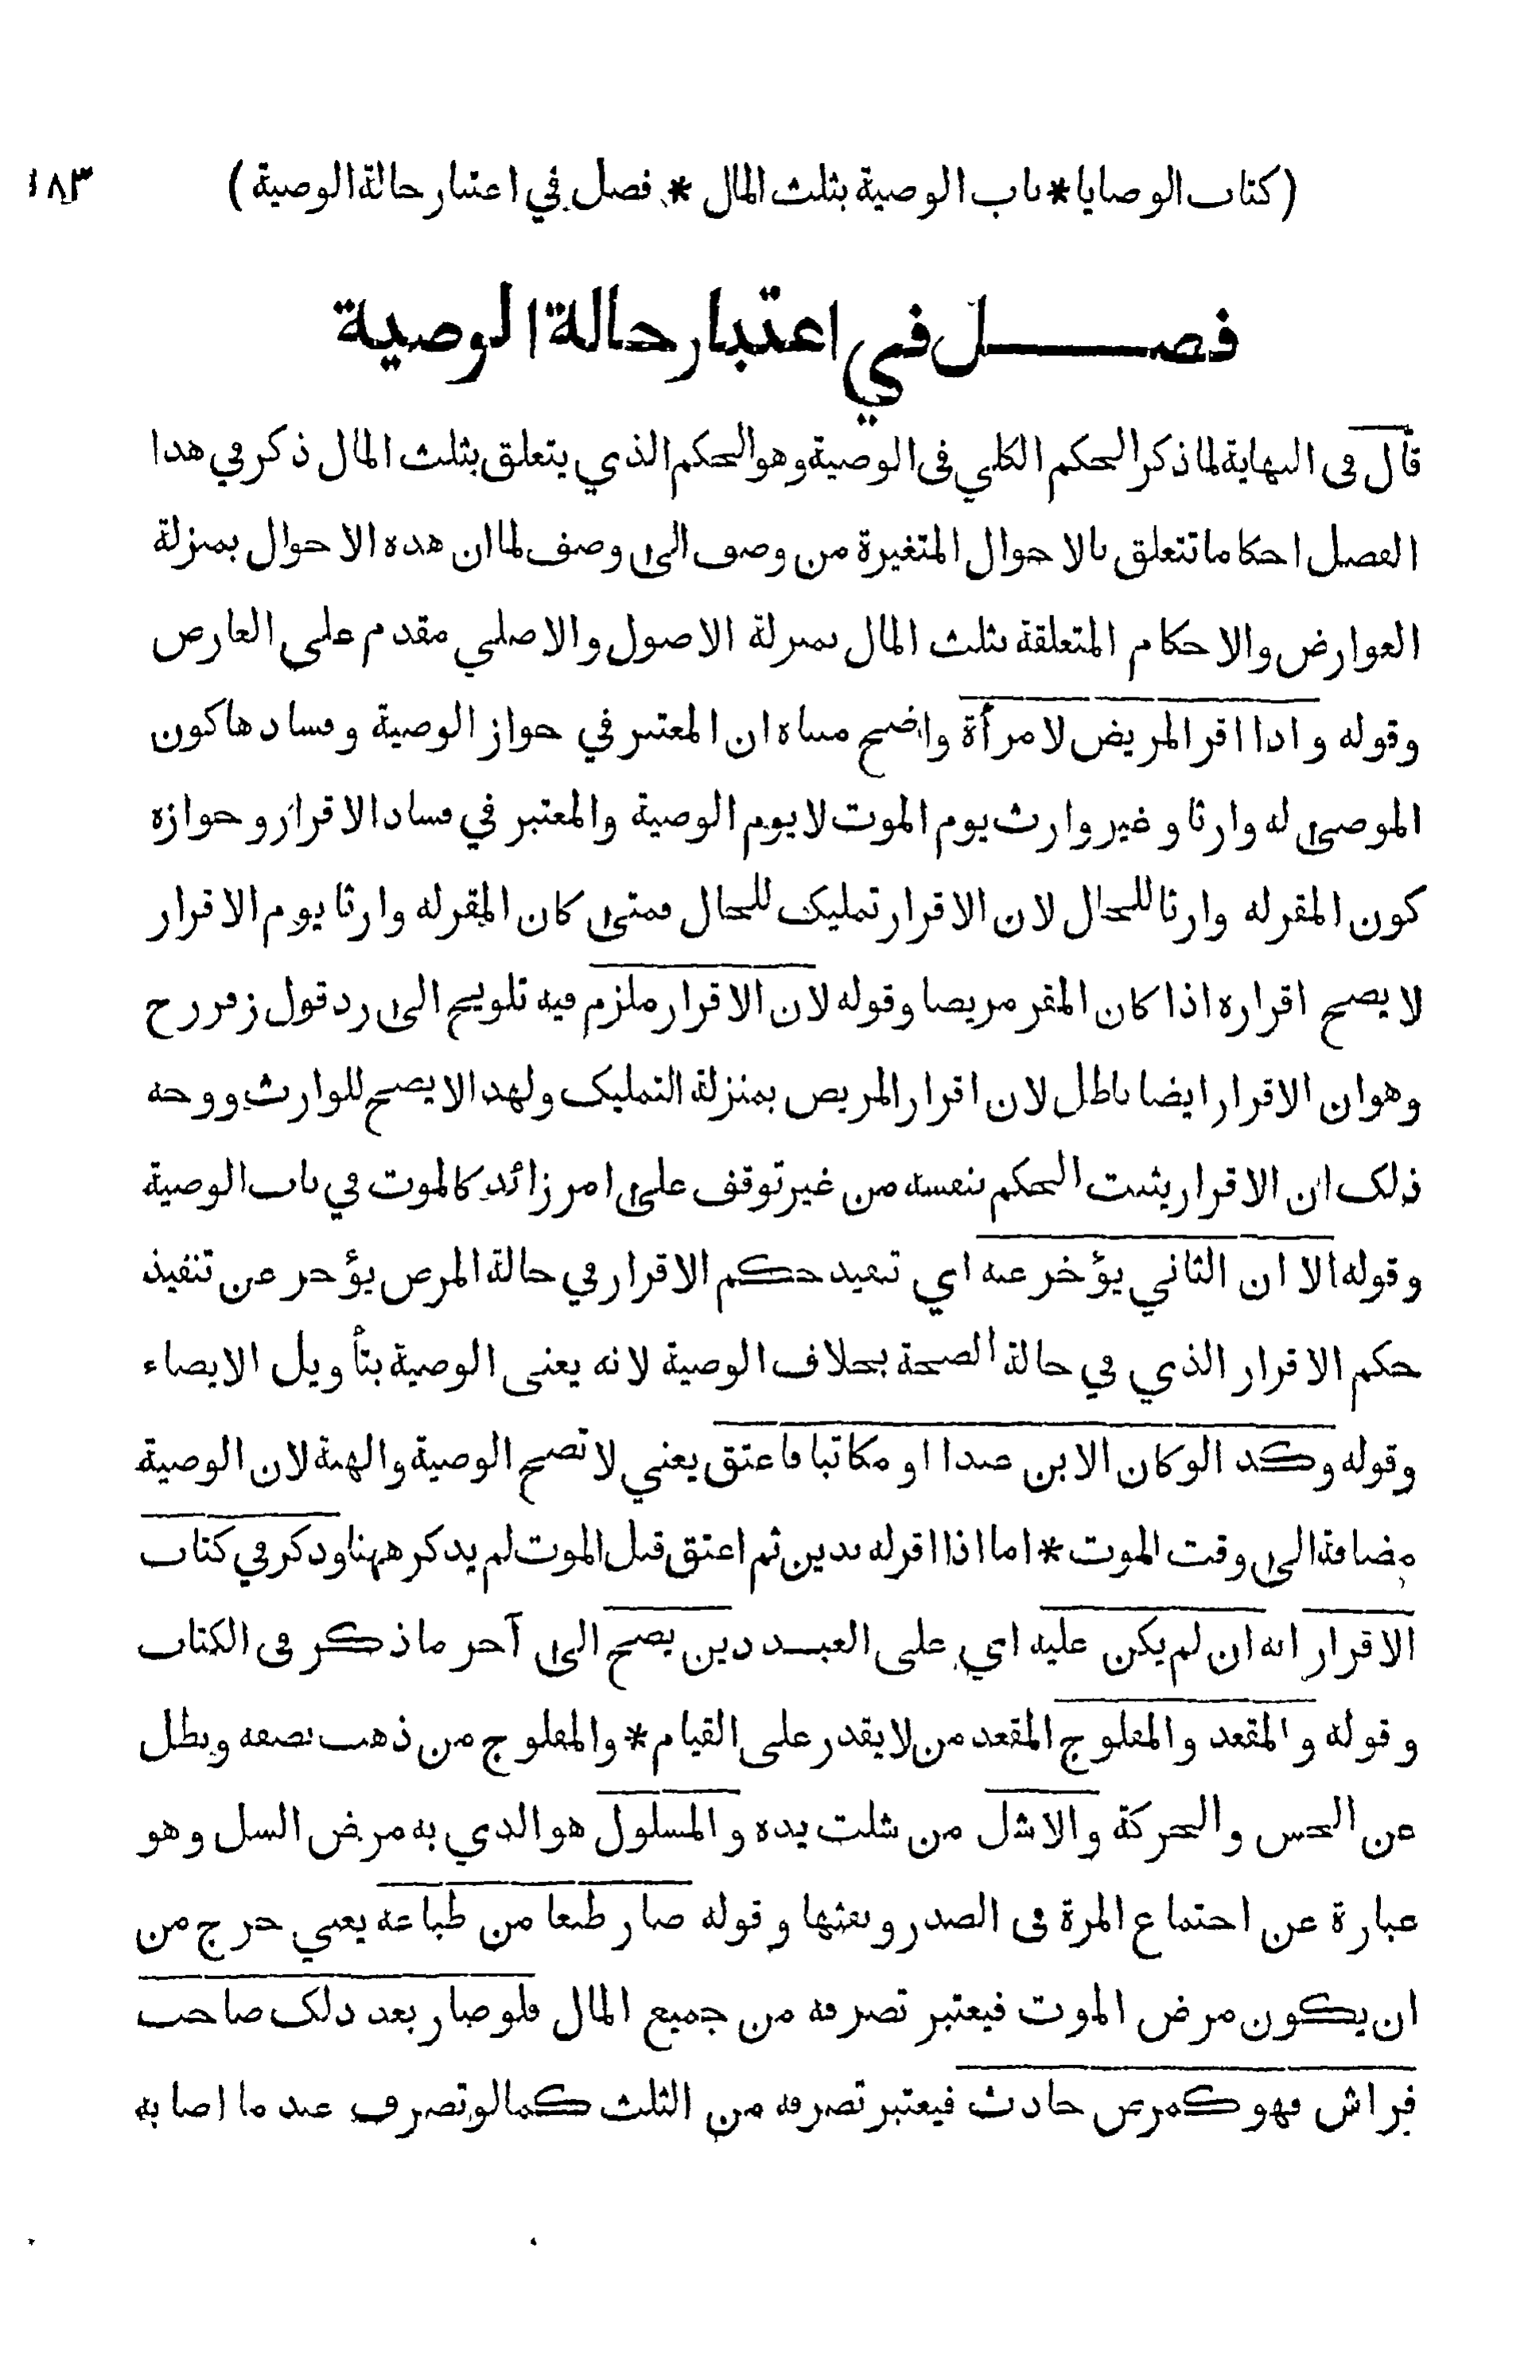 (كتاب الوصايا * باب الوصية بثلث المال * فصل في اعتبار حالة الوصية) ١٨٣
فصل في اعتبار حالة الوصية
قال في النهاية لما ذكر الحكم الكلي في الوصية وهو الحكم الذي يتعلق بثلث المال ذكر في هذا
الفصل احكاما تتعلق بالاحوال المتغيرة من وصف الى وصف لما ان هذه الاحوال بمنزلة
العوارض والاحكام المتعلقة بثلث المال بمنزلة الاصول والاصلي مقدم على العارض
وقوله واذا اقر المريض لامرأة واضح مبناه ان المعتبر في جواز الوصية وفسادها كون
الموصى له وارثا وغير وارث يوم الموت لا يوم الوصية والمعتبر في فساد الاقرار وجوازه
كون المقر له وارثا للحال لان الاقرار تمليك للحال فمتى كان المقر له وارثا يوم الاقرار
لا يصح اقراره اذا كان المقر مريضا وقوله لان الاقرار ملزم فيه تلويح الى رد قول زفر رح
وهو ان الاقرار ايضا باطل لان اقرار المريض بمنزلة التمليك ولهذا لا يصح للوارث ووجه
ذلك ان الاقرار يثبت الحكم بنفسه من غير توقف على امر زائد كالموت في باب الوصية
وقوله الا ان الثاني يؤخر عنه اي تنفيذ حكم الاقرار في حالة المرض يؤخر عن تنفيذ
حكم الاقرار الذي في حالة الصحة بخلاف الوصية لانه يعنى الوصية بتأويل الايصاء
وقوله وكذا لو كان الابن عبدا او مكاتبا فاعتق يعني لا تصح الوصية والهبة لان الوصية
مضافة الى وقت الموت * اما اذا اقر له بدين ثم اعتق قبل الموت لم يذكر ههنا وذكر في كتاب
الاقرار انه ان لم يكن عليه اي على العبد دين يصح الى آخر ما ذكر في الكتاب
وقوله والمقعد والمفلوج المقعد من لا يقدر على القيام * والمفلوج من ذهب نصفه وبطل
عن الحس والحركة والاشل من شلت يده والمسلول هو الذي به مرض السل وهو
عبارة عن اجتماع المرة في الصدر ونفثها وقوله صار طبعا من طباعه يعني خرج من
ان يكون مرض الموت فيعتبر تصرفه من جميع المال فلو صار بعد ذلك صاحب
فراش فهو كمرض حادث فيعتبر تصرفه من الثلث كما لو تصرف عند ما اصابه